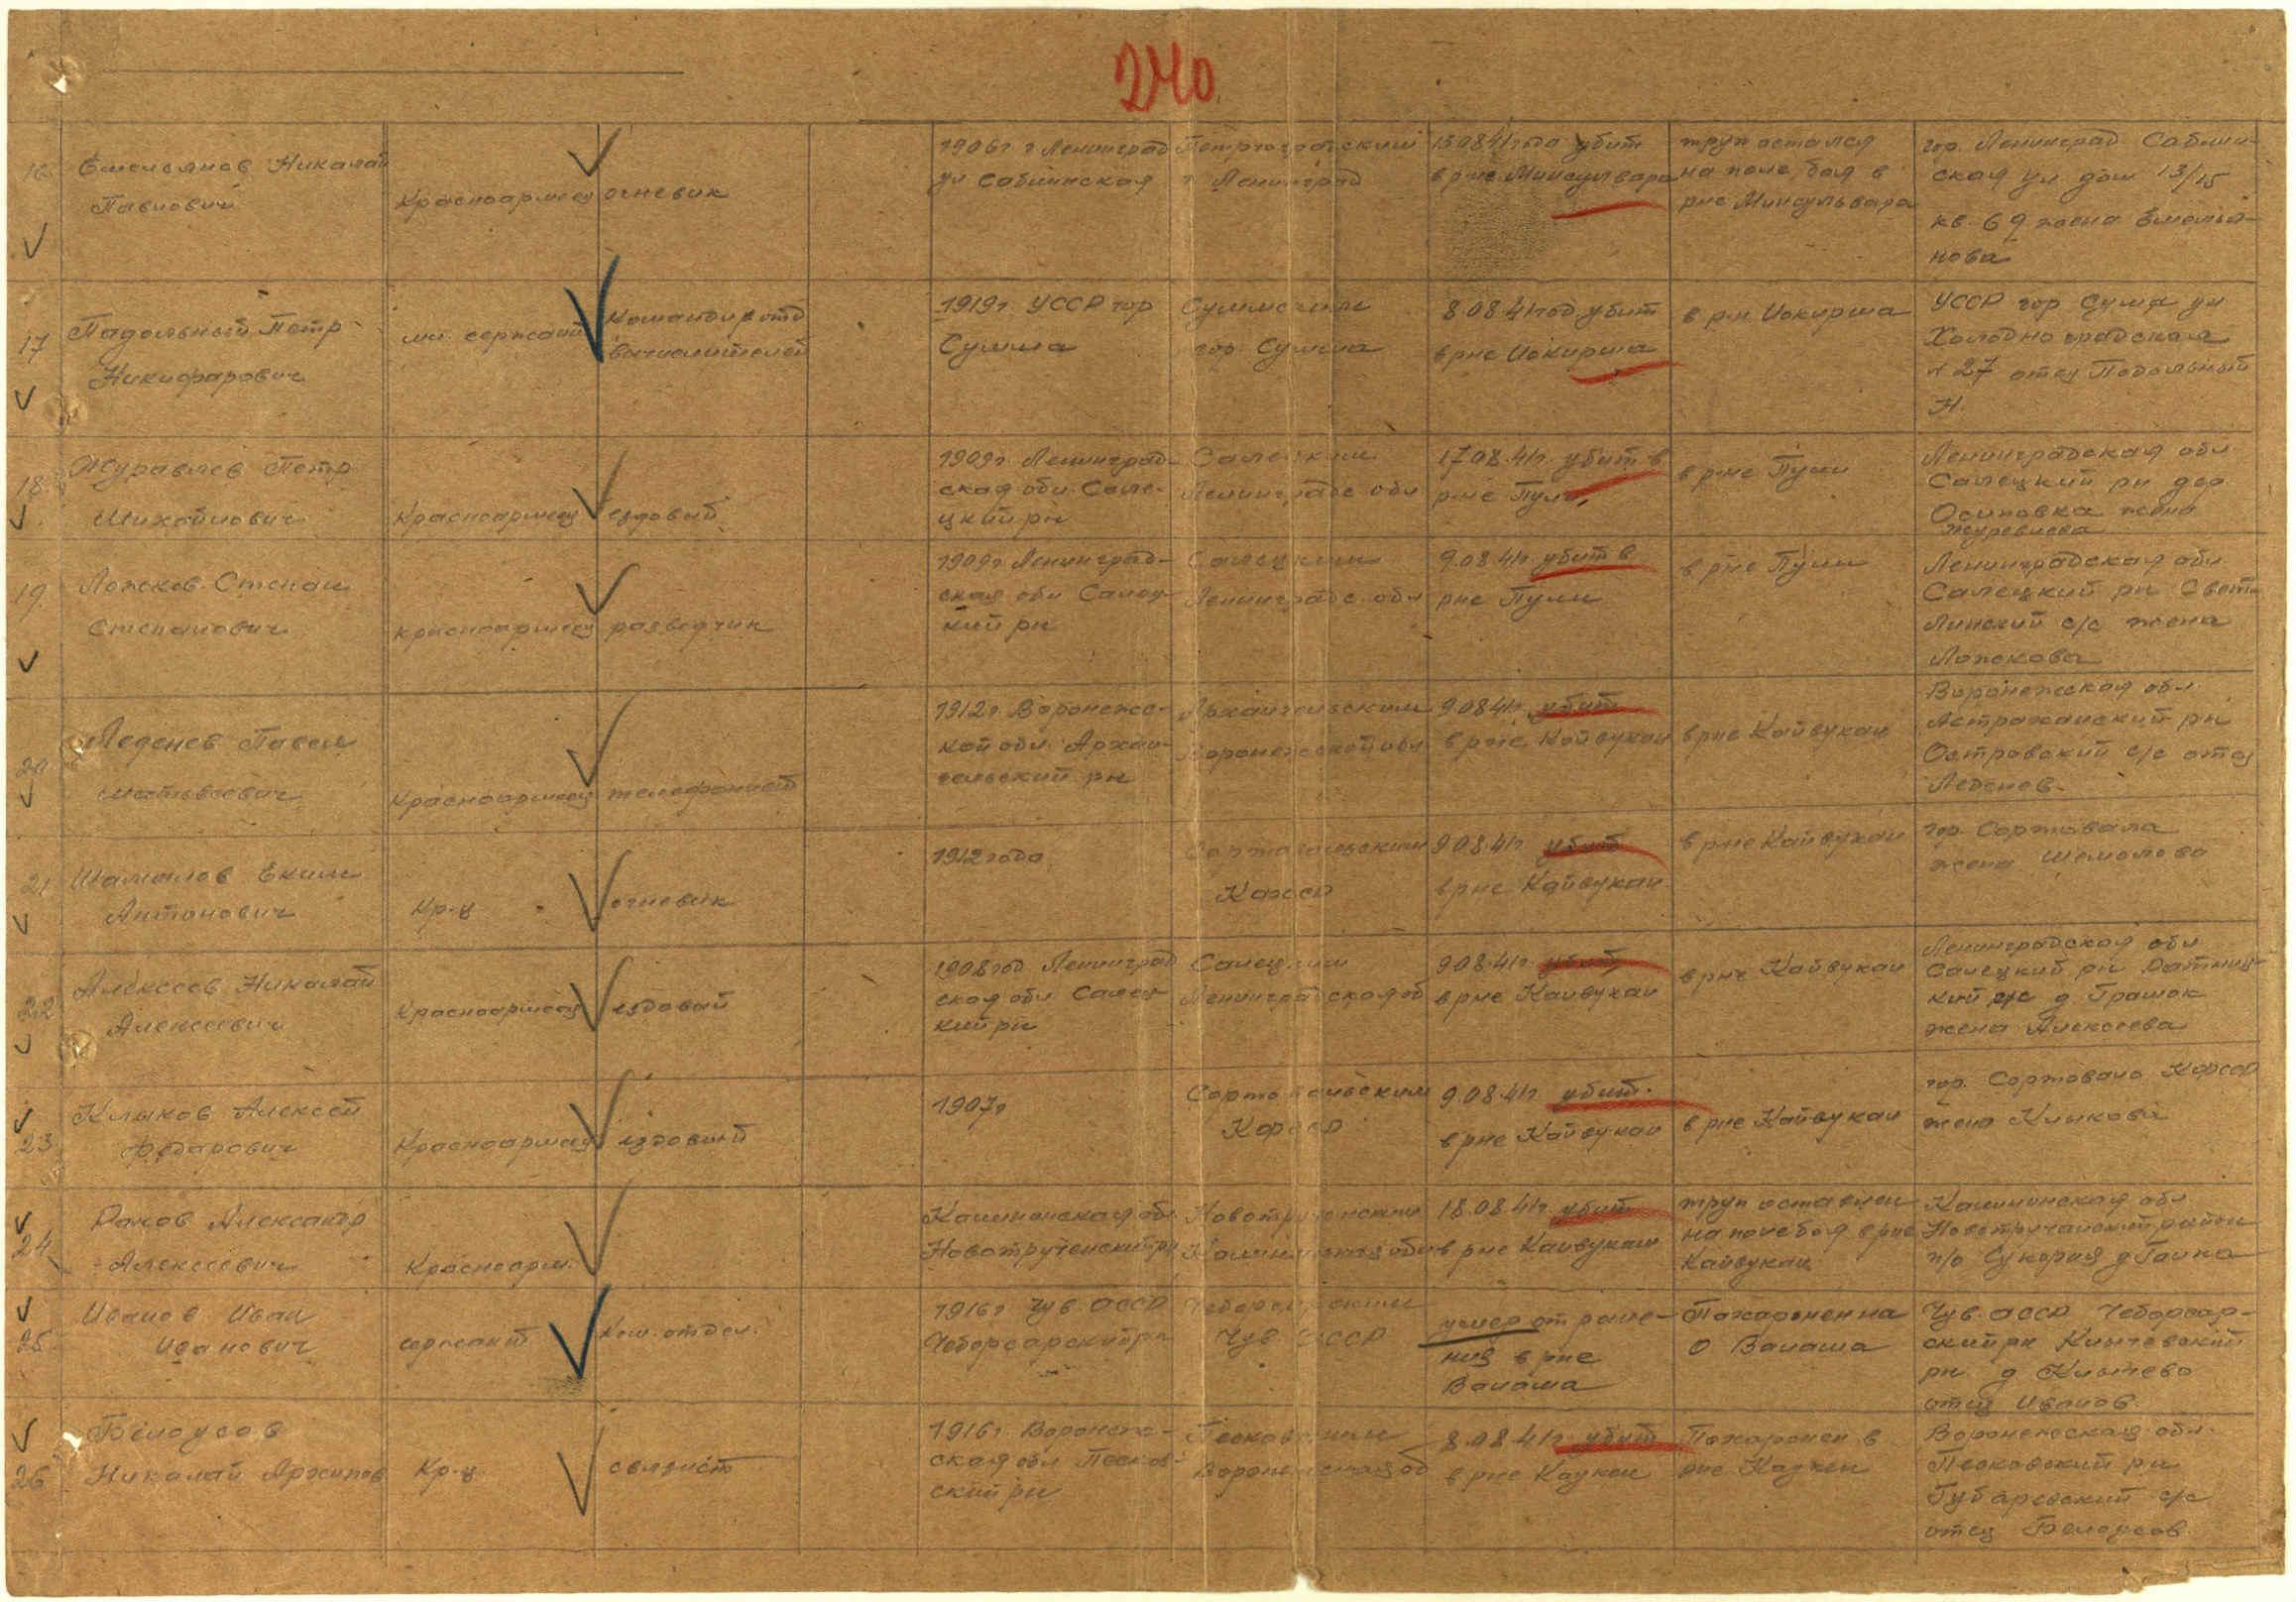 240
16 Емельянов Николай
Павлович
Красноармеец
огневик
1906г г Ленинград
ул Саблинская
Петроградский
г Ленинград
15.08.41 года убит
в рне Минсулвара
труп остался
на поле боя в
рне Минсульвара
гор. Ленинград Саблин-
ская ул дом 13/15
кв. 69 жена Емелья-
нова
17 Падольный Петр
Никифарович
мл. сержант
Командир отд
вычислителей
1919г. УССР гор
Сумма
Суммским
гор. Сумма
8.08.41 год убит
в рне Иокирша
в рн. Иокирша
УССР гор Сума ул
Холодно градская
№ 27 отец Подольный
Н.
18 Журавлев Петр
Михайлович
Красноармеец
ездовый
1909г. Ленинград-
ская обл. Сале-
цкий рн
Салецким
Ленинградс обл
17.08.41г. убит в
рне Пули
в рне Пули
Ленинградская обл
Салецкий рн дер
Осиповка жена
Журавлева
19. Ложков Степан
Степанович
красноармеец
разведчик
1909г. Ленинград-
ская обл Салец-
кий рн
Салецким
Ленинградс. обл
9.08.41г. убит в
рне Пули
в рне Пули
Ленинградская обл.
Салецкий рн Свет-
Линский с/с жена
Ложкова
20 Леденев Павел
Матвеевич
Красноармеец
телефонист
1912г. Воронежс-
кой обл. Архан-
гельский рн
Архангельским
Воронежской обл
9.08.41г. убит
в рне Кайвукан
в рне Кайвукан
Воронежская обл.
Астраханский рн
Островский с/с отец
Леденев.
21 Шамалов Еким
Антонович
Кр-ц
огневик
1912 года
Сортавальским
КФССР
9.08.41г. убит
в рне Кайвукан
в рне Кайвукан
гор. Сортавала
жена Шамолова
22 Алексеев Николай
Алексеевич
Красноармеец
ездовой
1908 год Ленинград
ская обл Салец-
кий рн
Салецким
Ленинградская об
9.08.41г. убит
в рне Кайвукан
в рне Кайвукан
Ленинградская обл
Салецкий рн
кий с/с д
жена Алексеева
23 Клыков Алексей
Фёдарович
Красноармеец
ездовый
1907г
Сортавальским
КФССР
9.08.41г. убит.
в рне Кайвукан
в рне Кайвукан
гор. Сортовала КФССР
жена Клыкова
24 Раков Александр
Алексеевич
Красноарм.
Калининская обл
Новотрученский рн
Новотрученским
Калининская обл
18.08.41г. убит
в рне Кайвукан
труп оставлен
на поле боя в рне
Кайвукан
Калининская обл
Новотручанский район
п/о Сукория д
25 Иванов Иван
Иванович
сержант
Ком. отдел.
1916г Чув. АССР
Чебоксарский рн
Чебоксарским
Чув. АССР
умер от ране-
ния в рне
Валаама
Похоронен на
о Валаама
Чув. АССР Чебоксар-
ский рн Клычевский
рн д Клычево
отец Иванов.
26 Белоусов
Николай Архипов
Кр-ц
связист
1916г. Воронеж-
ская обл Песков-
ский рн
Песковским
Воронежская об
8.08.41г. убит
в рне Каукен
Похоронен в
рне Каукен
Воронежская обл.
Песковский рн
Губаревский с/с
отец Белоусов